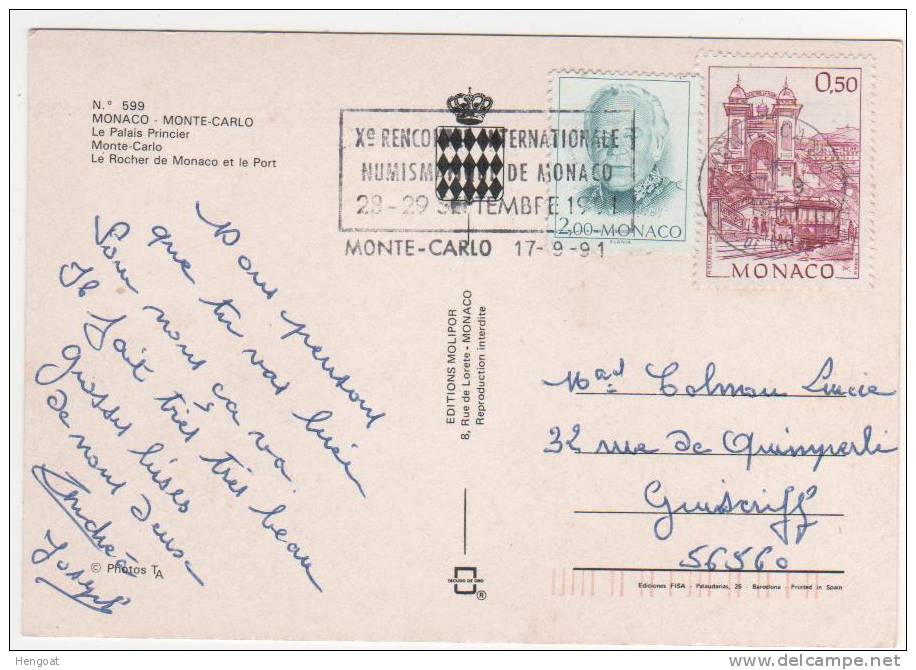 N.° 599
MONACO - MONTE-CARLO
Le Palais Princier
Monte-Carlo
Le Rocher de Monaco et le Port
Xe RENCO INTERNATIONALE
NUMISMA DE MONACO
28-29 SEPTEMBRE 1991
MONTE-CARLO 17-9-91
2,00 MONACO
SLANIA
0,50
MONACO
Nous pensons
que tu vas bien
Pour nous ça va
Il fait très très beau
grosses bises
de nous deux
Joseph
© Photos TA
EDITIONS MOLIPOR
8, Rue de Lorete - MONACO
Reproduction interdite
Mad Colmou Lucie
32 rue de Quimperli
Guiscriff
56560
ESCUDO DE ORO
®
Ediciones FISA - Palaudarias, 26 - Barcelona - Printed in Spain
Hengoat
www.delcampe.net